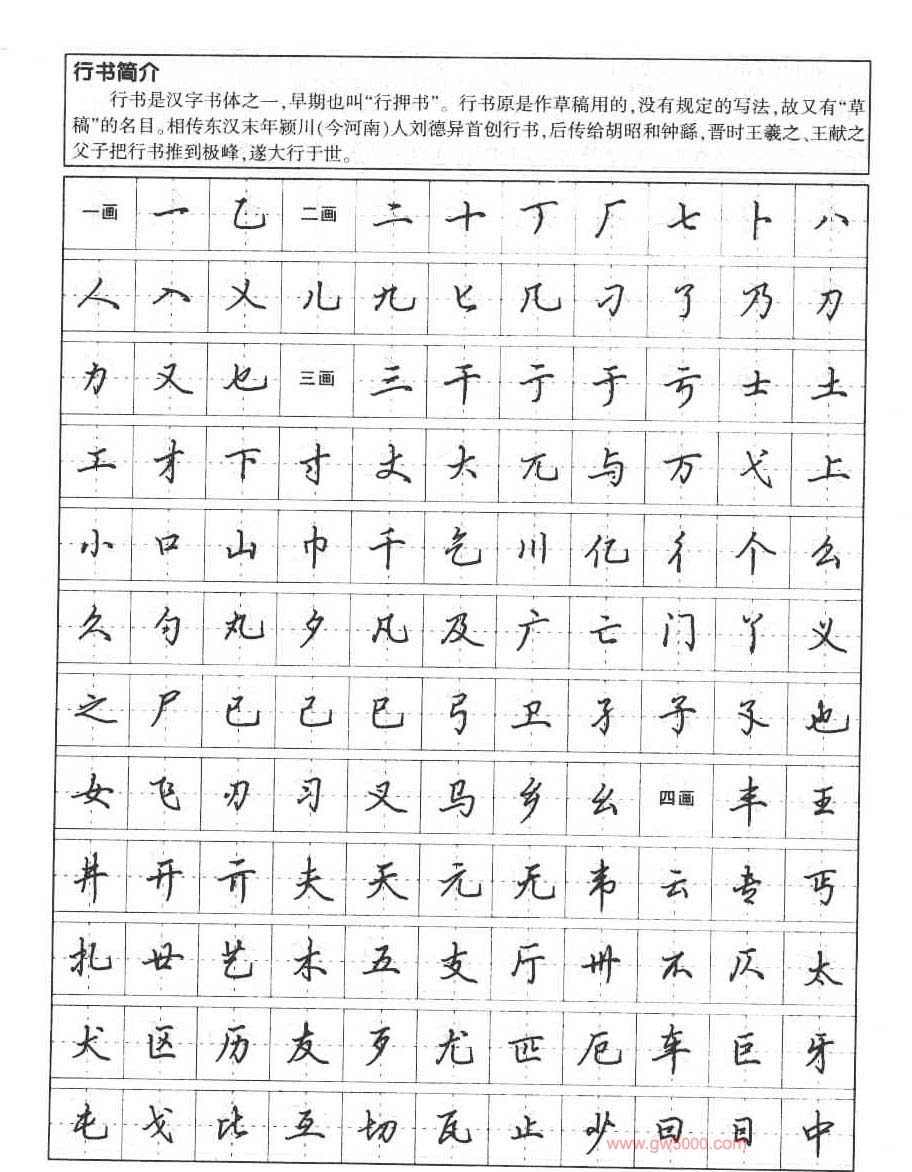 行书简介
行书是汉字书体之一,早期也叫“行押书”。行书原是作草稿用的,没有规定的写法,故又有“草
稿”的名目。相传东汉末年颍川(今河南)人刘德异首创行书,后传给胡昭和钟繇,晋时王羲之、王献之
父子把行书推到极峰,遂大行于世。
一画 一 乙 二画 二 十 丁 厂 七 卜 八
人 入 乂 儿 九 匕 几 刁 了 乃 刀
力 又 乜 三画 三 干 亍 于 亏 士 土
工 才 下 寸 丈 大 兀 与 万 弋 上
小 口 山 巾 千 乞 川 亿 彳 个 么
久 勺 丸 夕 凡 及 广 亡 门 丫 义
之 尸 已 己 巳 弓 卫 孑 子 孓 也
女 飞 刃 习 叉 马 乡 幺 四画 丰 王
井 开 亓 夫 天 元 无 韦 云 专 丐
扎 廿 艺 木 五 支 厅 卅 不 仄 太
犬 区 历 友 歹 尤 匹 厄 车 巨 牙
屯 戈 比 互 切 瓦 止 少 曰 日 中
www.gw5000.com